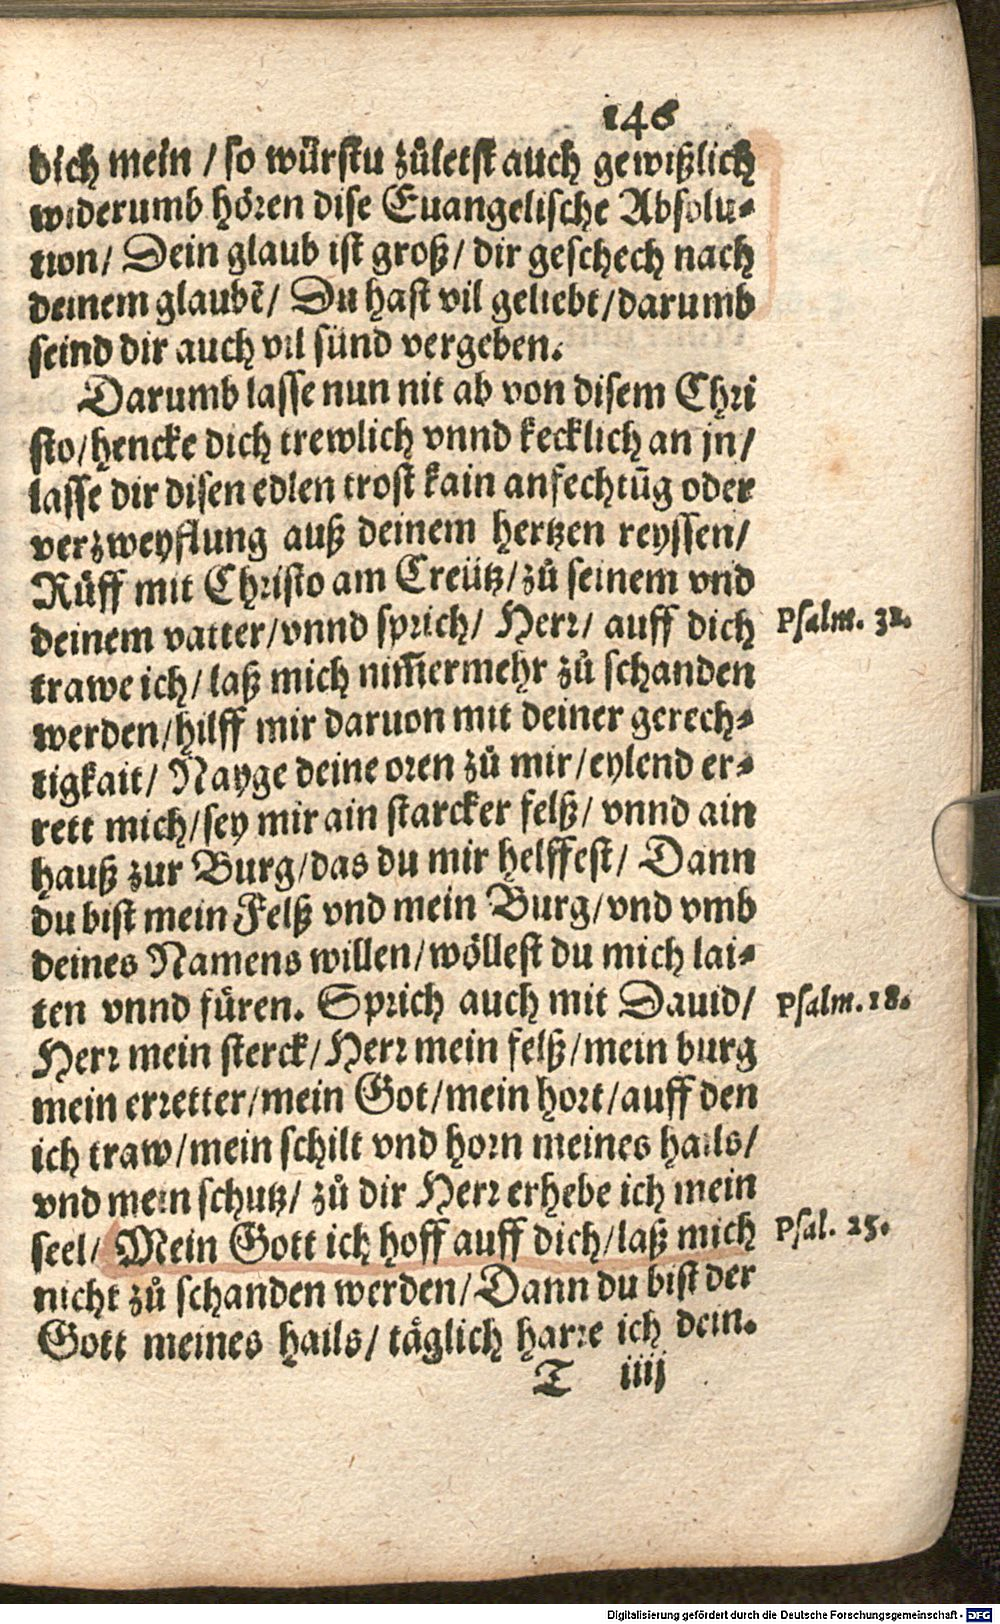 146
dich mein / so würstu zůletst auch gewißlich
widerumb hören dise Euangelische Absolu-
tion/ Dein glaub ist groß/ dir geschech nach
deinem glaubē/ Du hast vil geliebt/darumb
seind dir auch vil sünd vergeben.
Darumb lasse nun nit ab von disem Chri
sto/hencke dich trewlich vnnd kecklich an jn/
lasse dir disen edlen trost kain anfechtūg oder
verzweyflung auß deinem hertzen reyssen/
Růff mit Christo am Creütz/zů seinem vnd
deinem vatter/vnnd sprich/ Herr/ auff dich
Psalm. 31.
trawe ich/ laß mich nim̄ermehr zů schanden
werden/hilff mir daruon mit deiner gerech-
tigkait/ Nayge deine oren zů mir/eylend er-
rett mich/sey mir ain starcker felß/ vnnd ain
hauß zur Burg/das du mir helffest/ Dann
du bist mein Felß vnd mein Burg/vnd vmb
deines Namens willen/wöllest du mich lai-
ten vnnd füren. Sprich auch mit Dauid/
Psalm. 18.
Herr mein sterck/Herr mein felß/mein burg
mein erretter/mein Got/mein hort/auff den
ich traw/mein schilt vnd horn meines hails/
vnd mein schutz/ zů dir Herr erhebe ich mein
seel/ Mein Gott ich hoff auff dich/laß mich
Psal. 25.
nicht zů schanden werden/Dann du bist der
Gott meines hails/ täglich harre ich dein.
T iiij
Digitalisierung gefördert durch die Deutsche Forschungsgemeinschaft - DFG